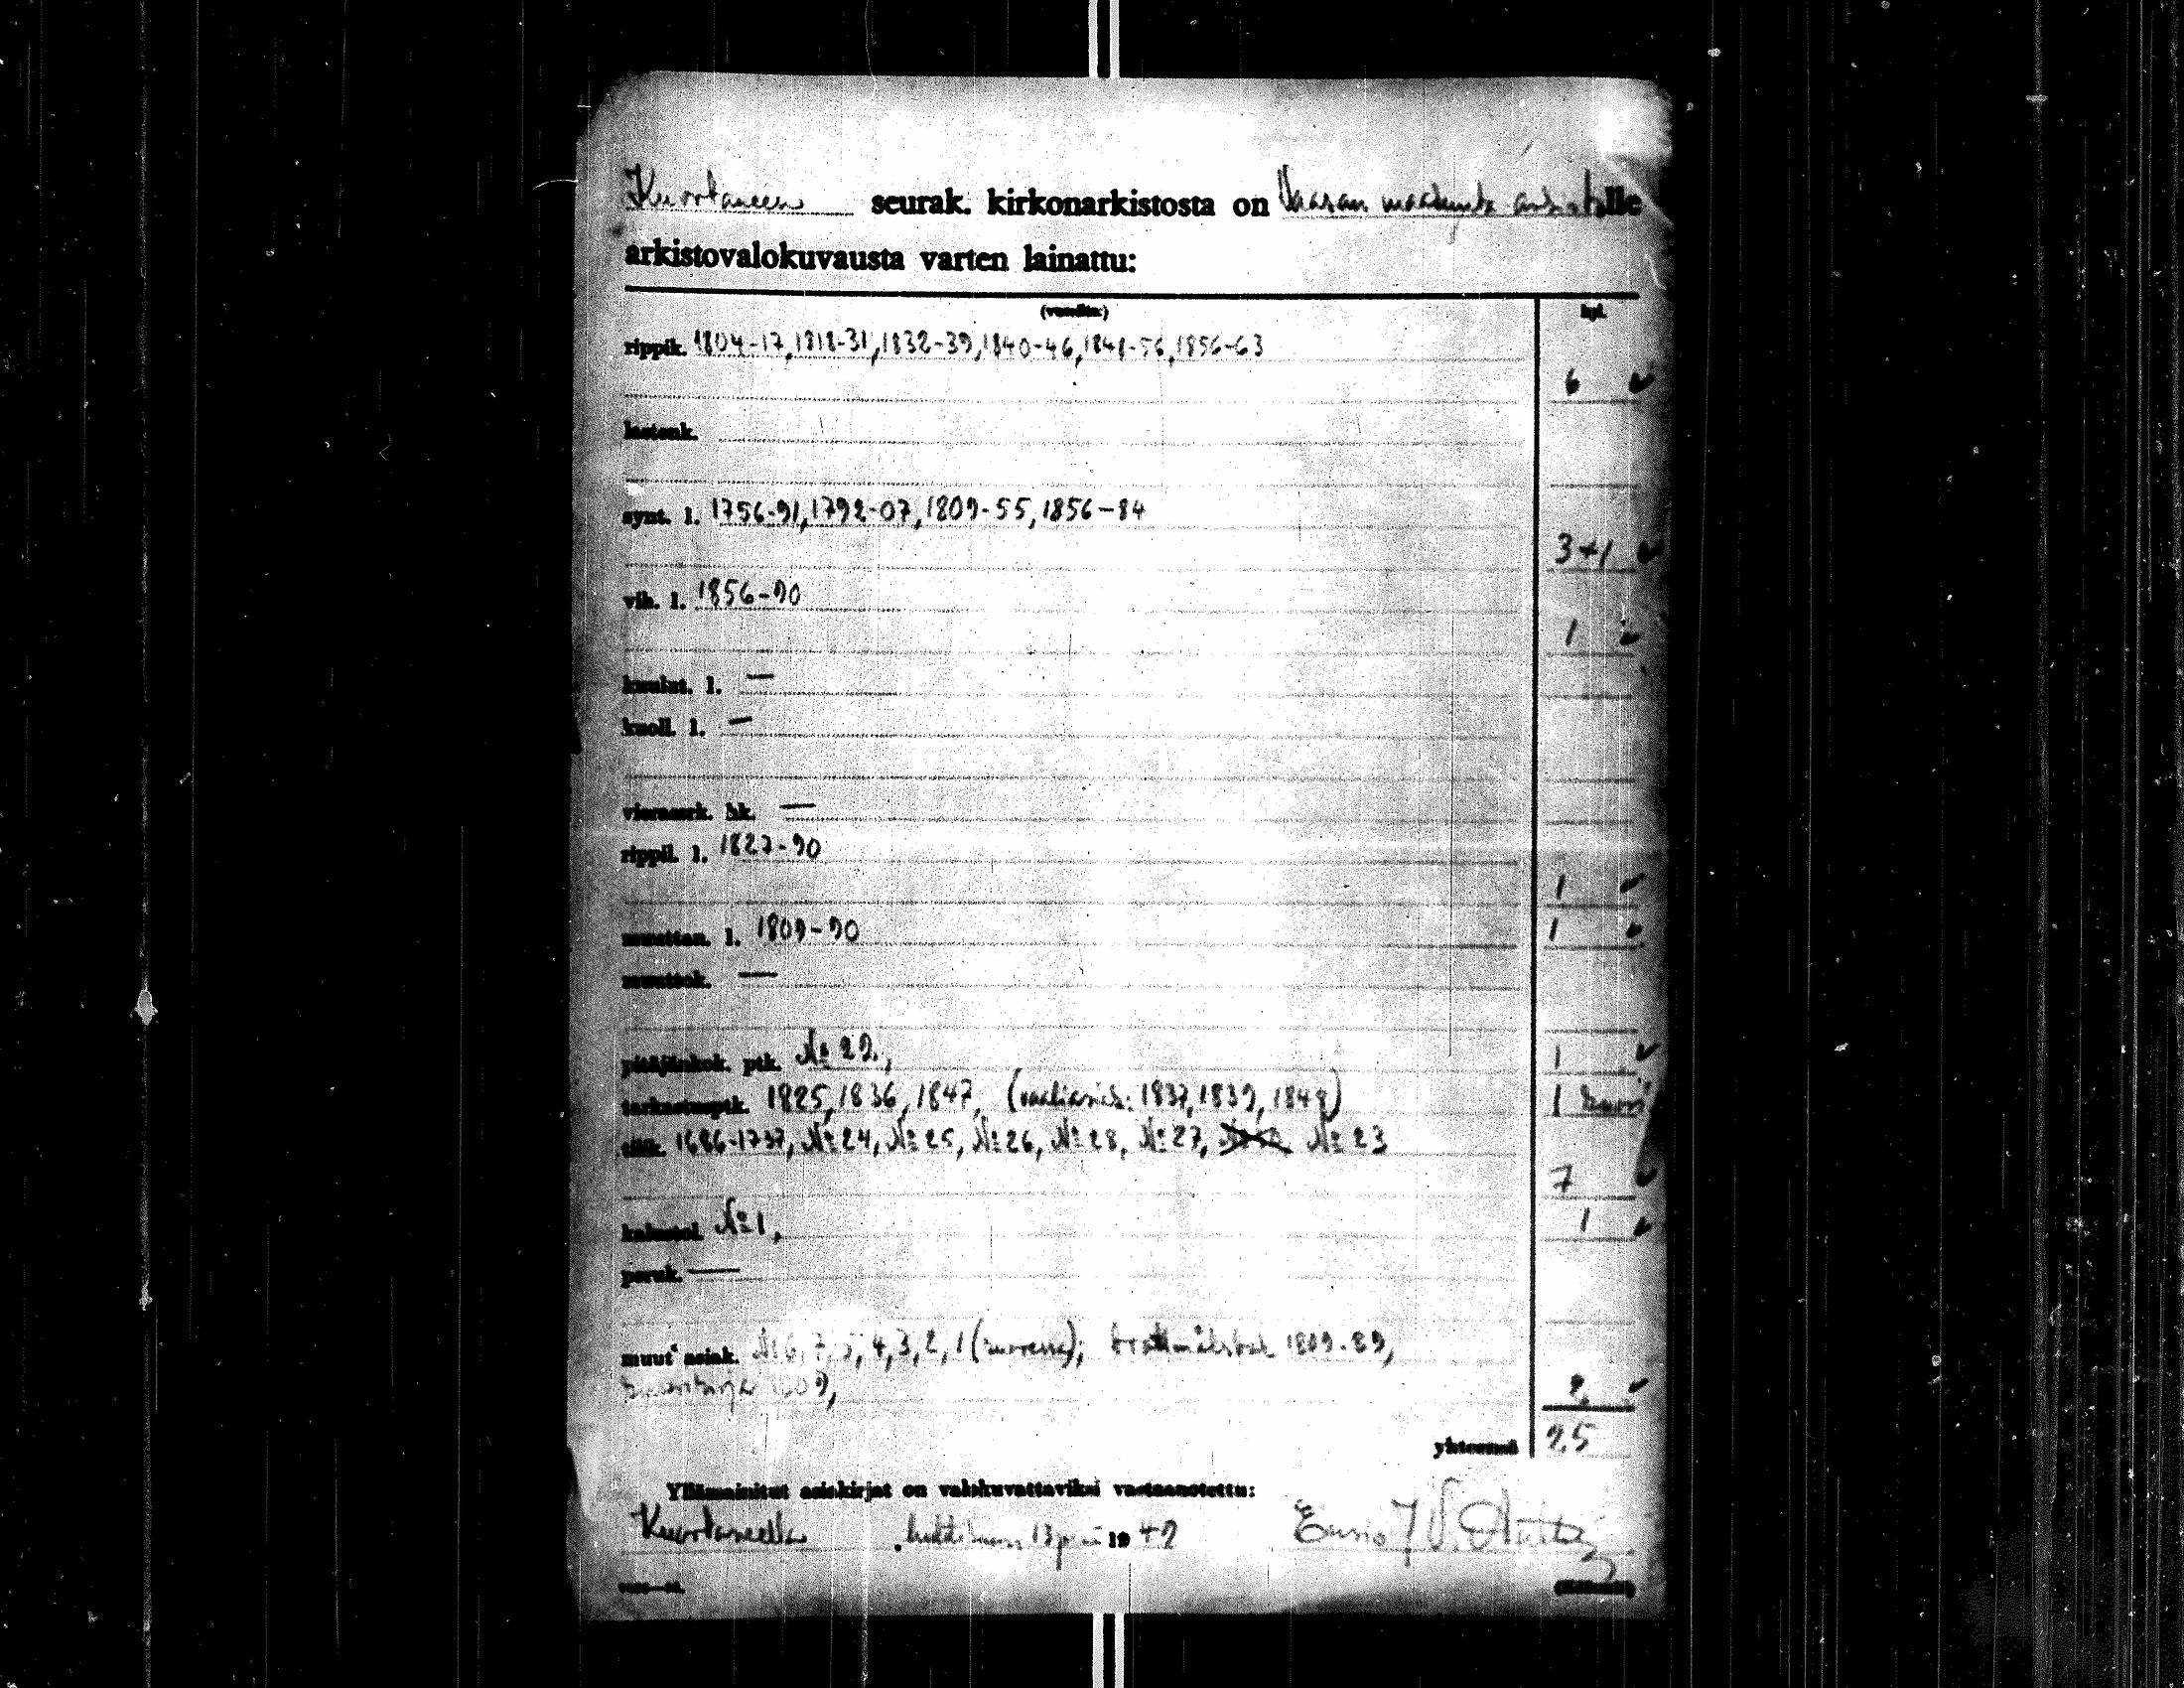 Kuortaneen seurak. kirkonarkistosta on Vaasan maakunta arkistolle
arkistovalokuvausta varten lainattu:
(vuosilta:) kpl.
rippik. 1804-17, 1818-31, 1832-39, 1840-46, 1848-56, 1856-63
6 ✓
lastenk.
synt. l. 1756-91, 1792-07, 1809-55, 1856-84
3+1 ✓
vih. l. 1856-90
1 ✓
kuulut. l. —
kuoll. l. —
vieraserk. hk. —
rippil. l. 1827-90
1 ✓
muuttan. l. 1809-90 1 ✓
muuttok. —
pitäjänkok. ptk. № 29, 1 ✓
tarkastusptk. 1825, 1836, 1847, (vaaliasiak: 1837, 1839, 1848) 1 kuori
tilik. 1686-1737, № 24, № 25, № 26, № 28, № 27, № 23
7 ✓
kalustol. № 1, 1 ✓
peruk. —
muut asiak. № 6, 7, 5, 4, 3, 2, 1 ( ); 1809-89,
2 ✓
yhteensä 25
Yllämainitut asiakirjat on valokuvattaviksi vastaanotettu:
Kuortaneella, huhtikuun 13 p:nä 1949 Eusio